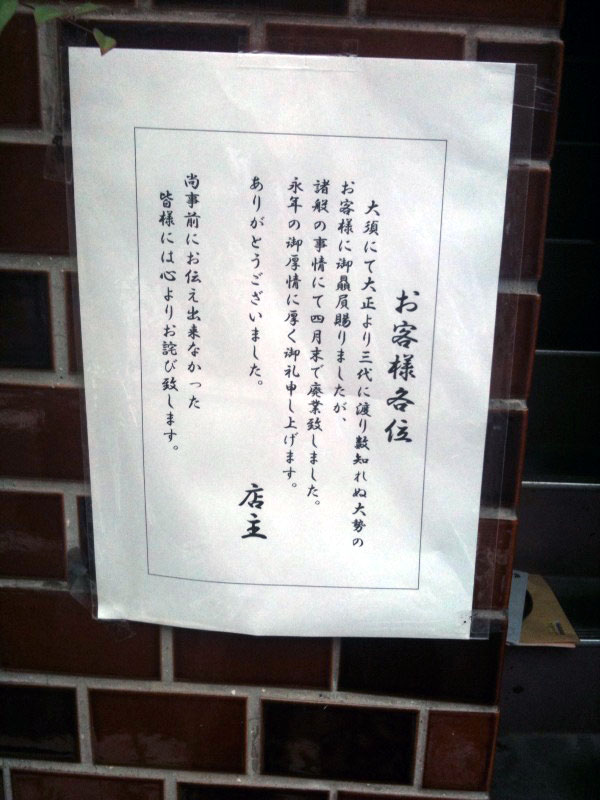 お客様各位
大須にて大正より三代に渡り数知れぬ大勢の
お客様に御贔屓賜りましたが、
諸般の事情にて四月末で廃業致しました。
永年の御厚情に厚く御礼申し上げます。
ありがとうございました。
店主
尚事前にお伝え出来なかった
皆様には心よりお詫び致します。